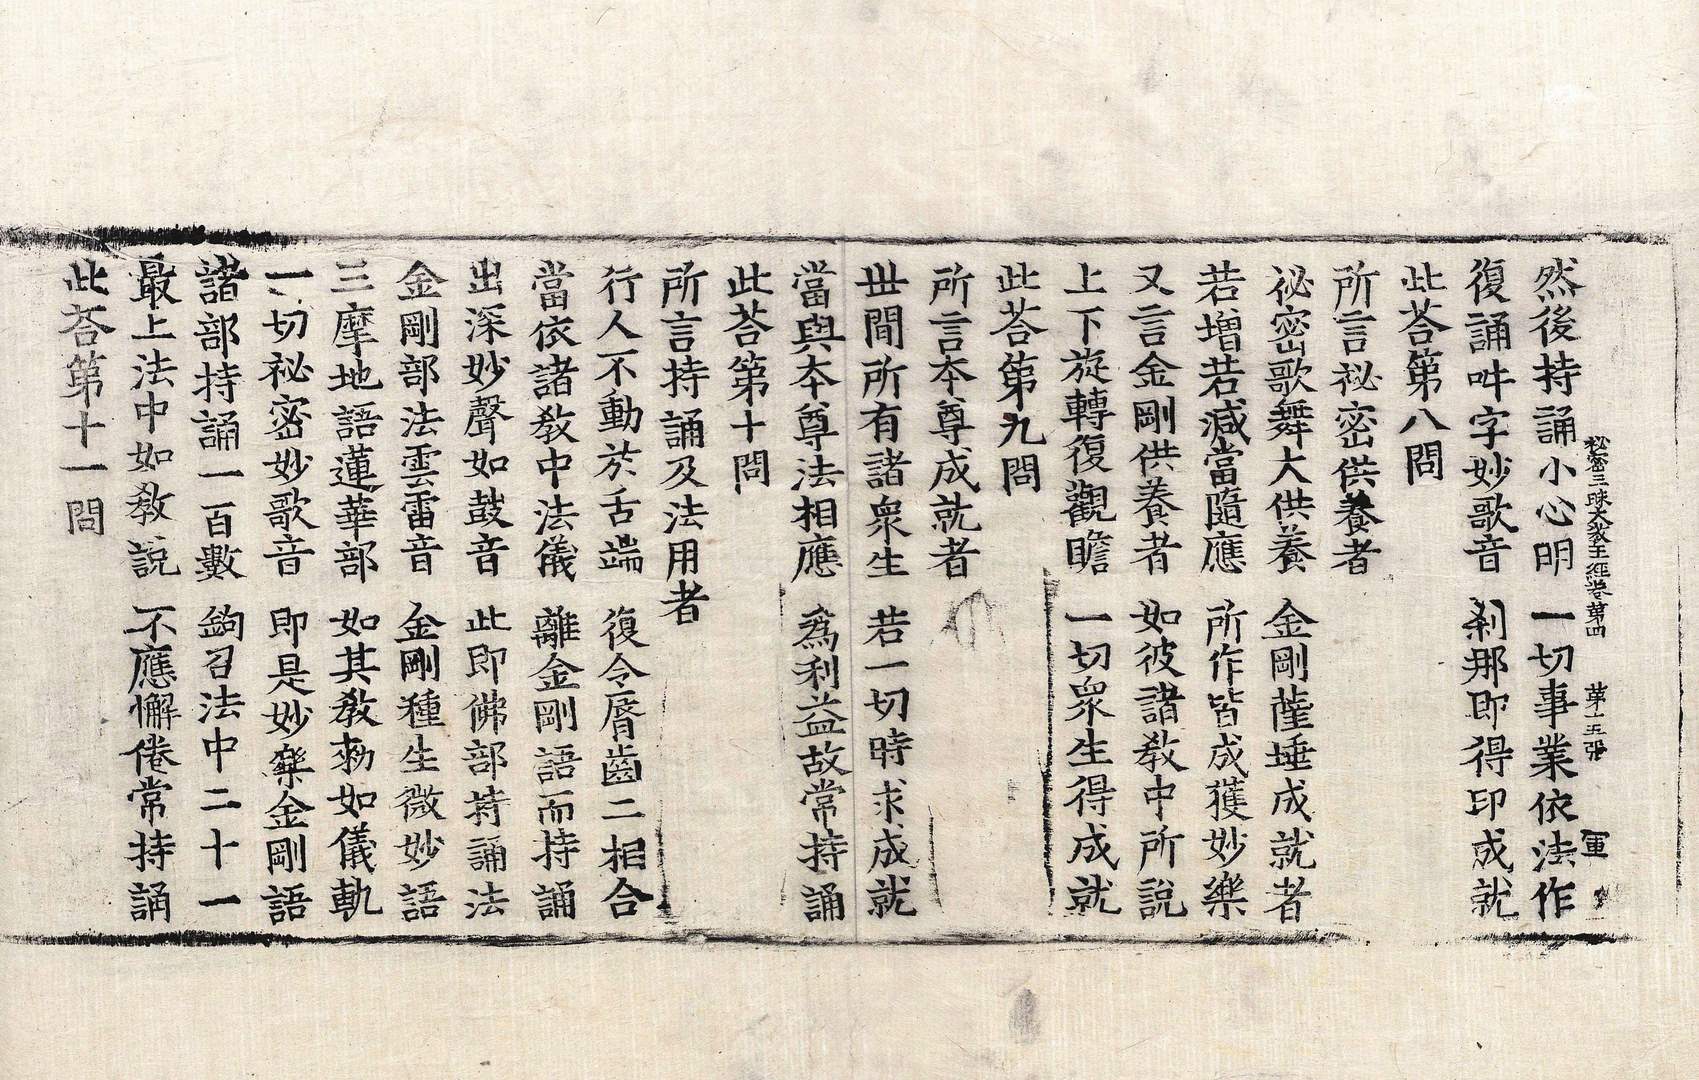 秘密三昧大教王經卷第四 第十五張 軍
然後持誦小心明 一切事業依法作
復誦吽字妙歌音 刹那即得印成就
此荅第八問
所言祕密供養者
祕密歌舞大供養 金剛薩埵成就者
若增若減當隨應 所作皆成獲妙樂
又言金剛供養者 如彼諸敎中所說
上下旋轉復觀瞻 一切衆生得成就
此荅第九問
所言本尊成就者
世間所有諸衆生 若一切時求成就
當與本尊法相應 爲利益故常持誦
此荅第十問
所言持誦及法用者
行人不動於舌端 復令脣齒二相合
當依諸敎中法儀 離金剛語而持誦
出深妙聲如鼓音 此即佛部持誦法
金剛部法雲雷音 金剛種生微妙語
三摩地語蓮華部 如其敎勑如儀軌
一切祕密妙歌音 即是妙樂金剛語
諸部持誦一百數 鉤召法中二十一
最上法中如敎說 不應懈倦常持誦
此荅第十一問